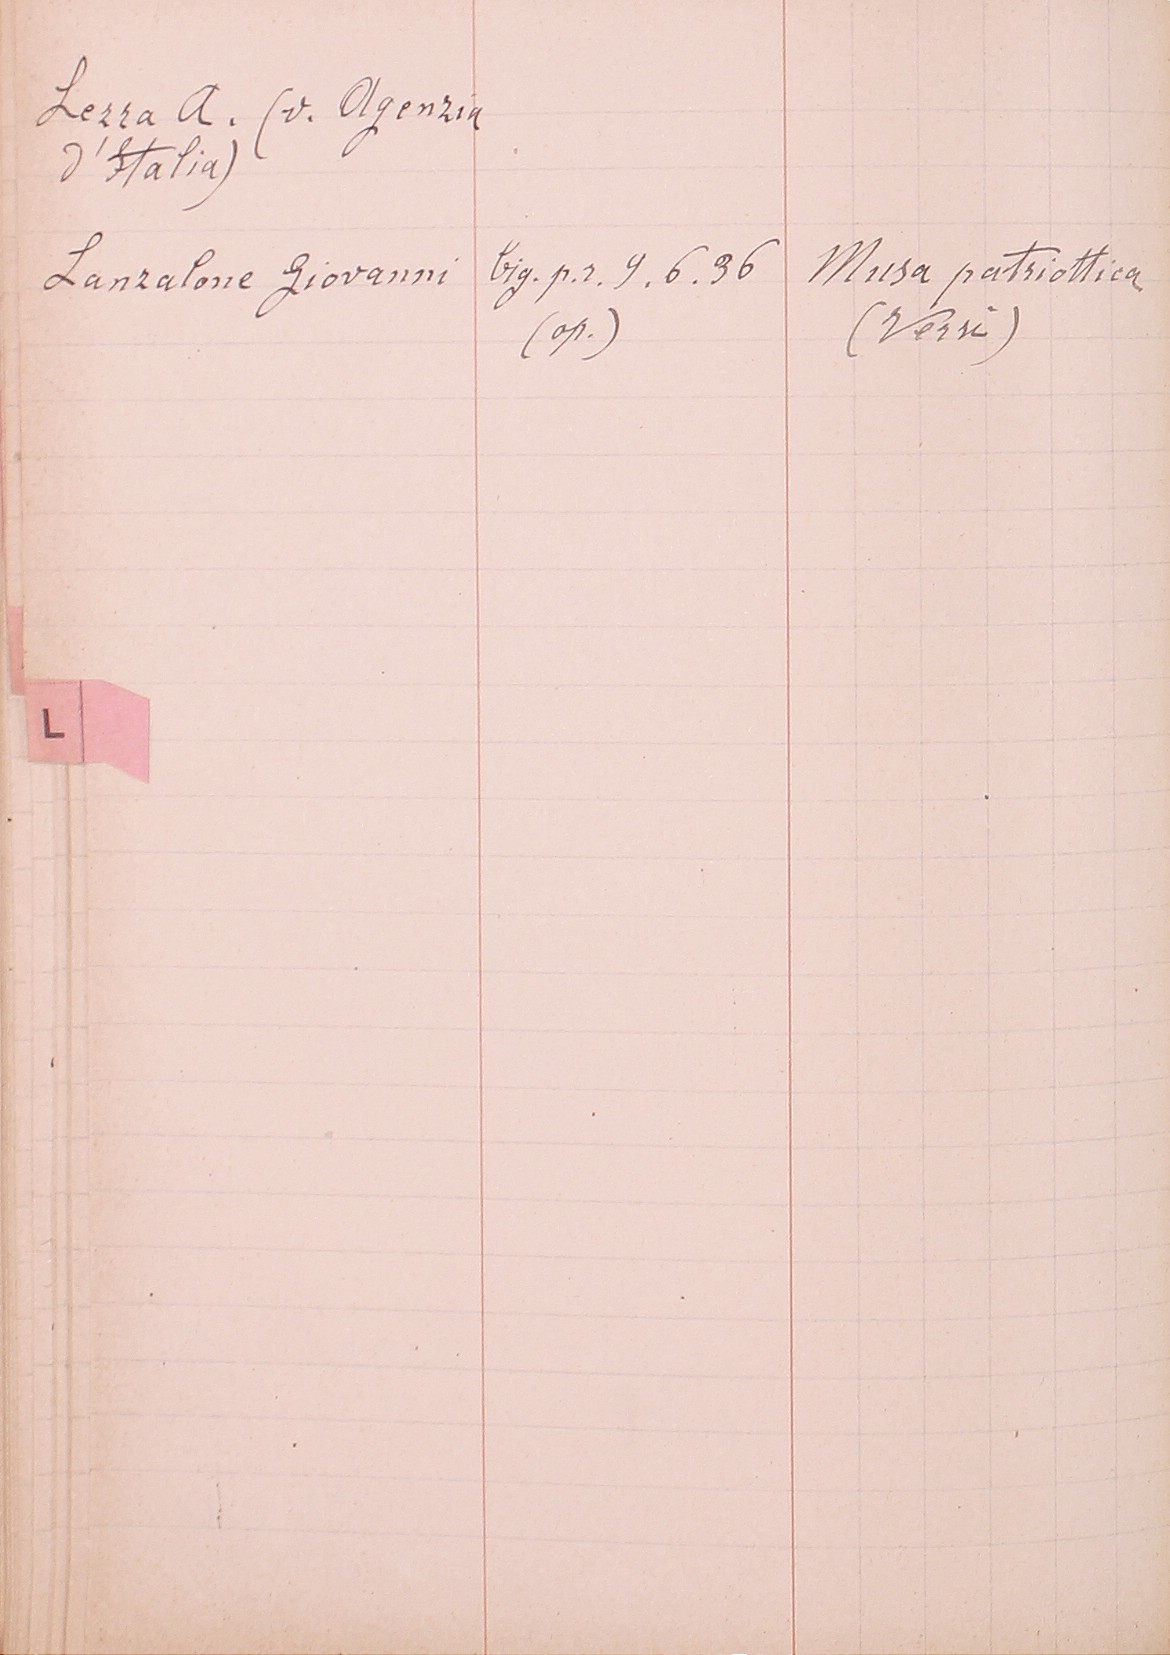 Lezza A. (v. Agenzia
d'Italia)
Lanzalone Giovanni big. p. r. 9. 6. 36 Musa patriottica
(op.) (Versi)
L